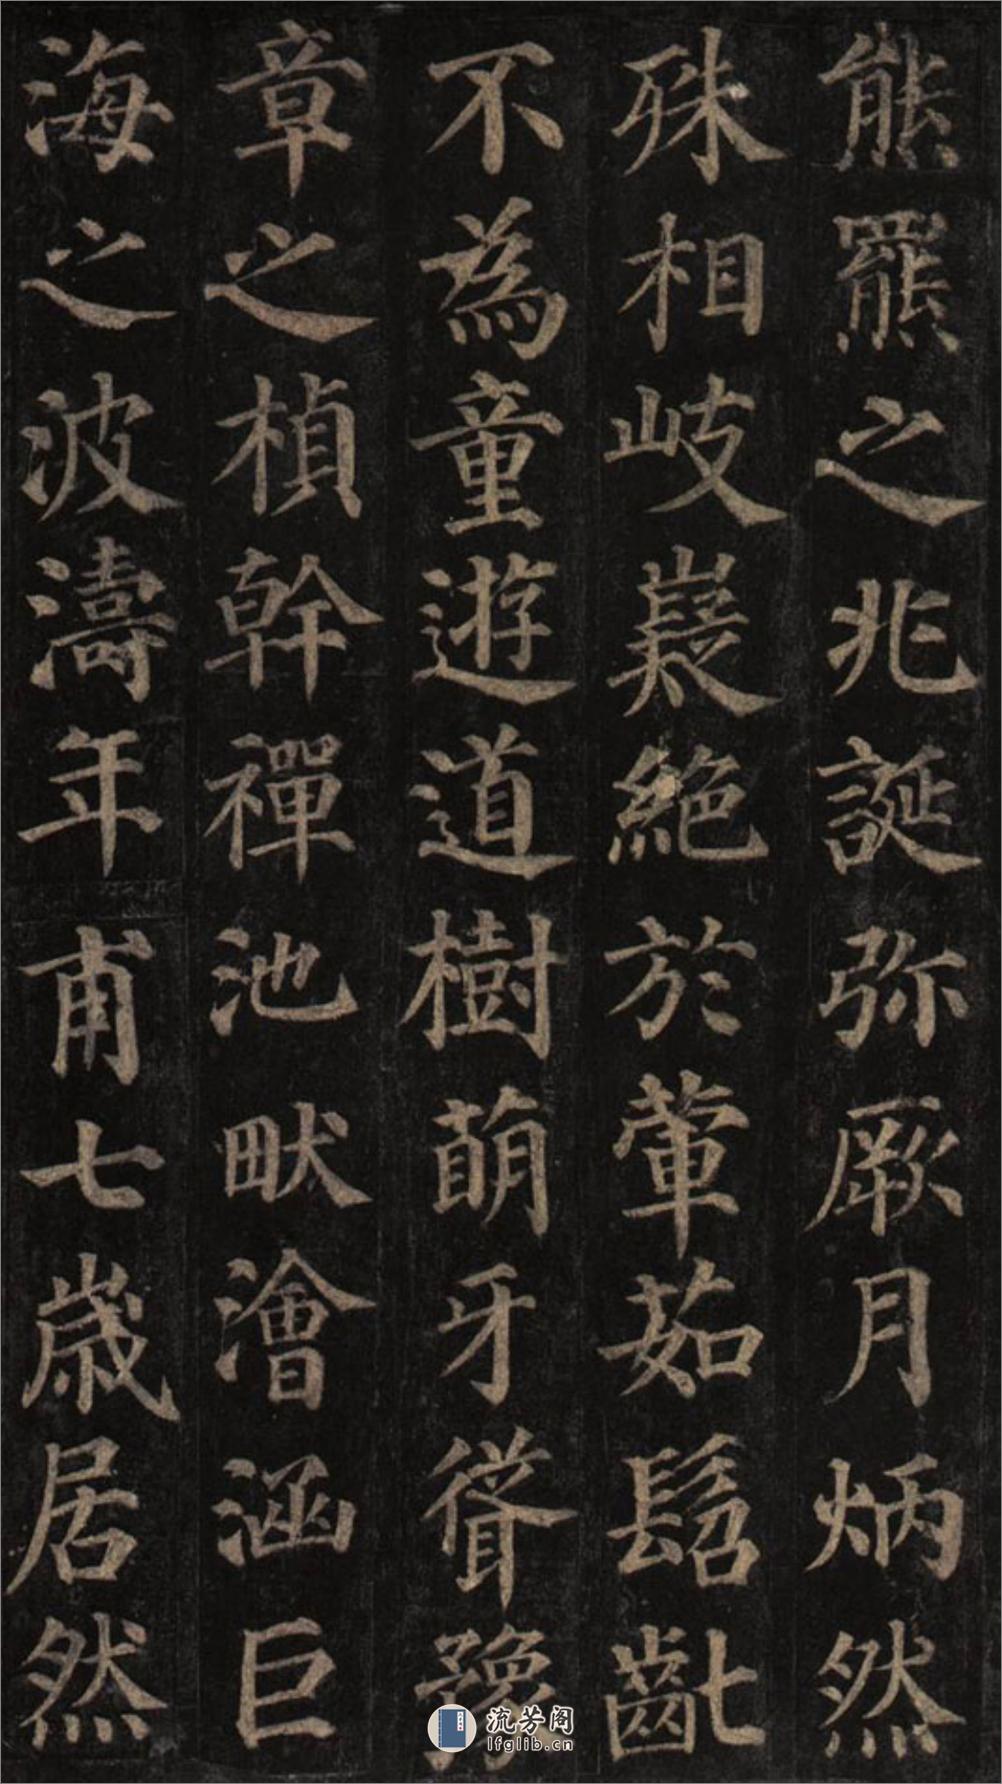 熊羆之兆誕弥厥月炳然
殊相岐嶷絕於葷茹髫齔
不為童遊道樹萌牙聳豫
章之楨幹禪池畎澮涵巨
海之波濤年甫七歲居然
流芳阁
lfglib.cn